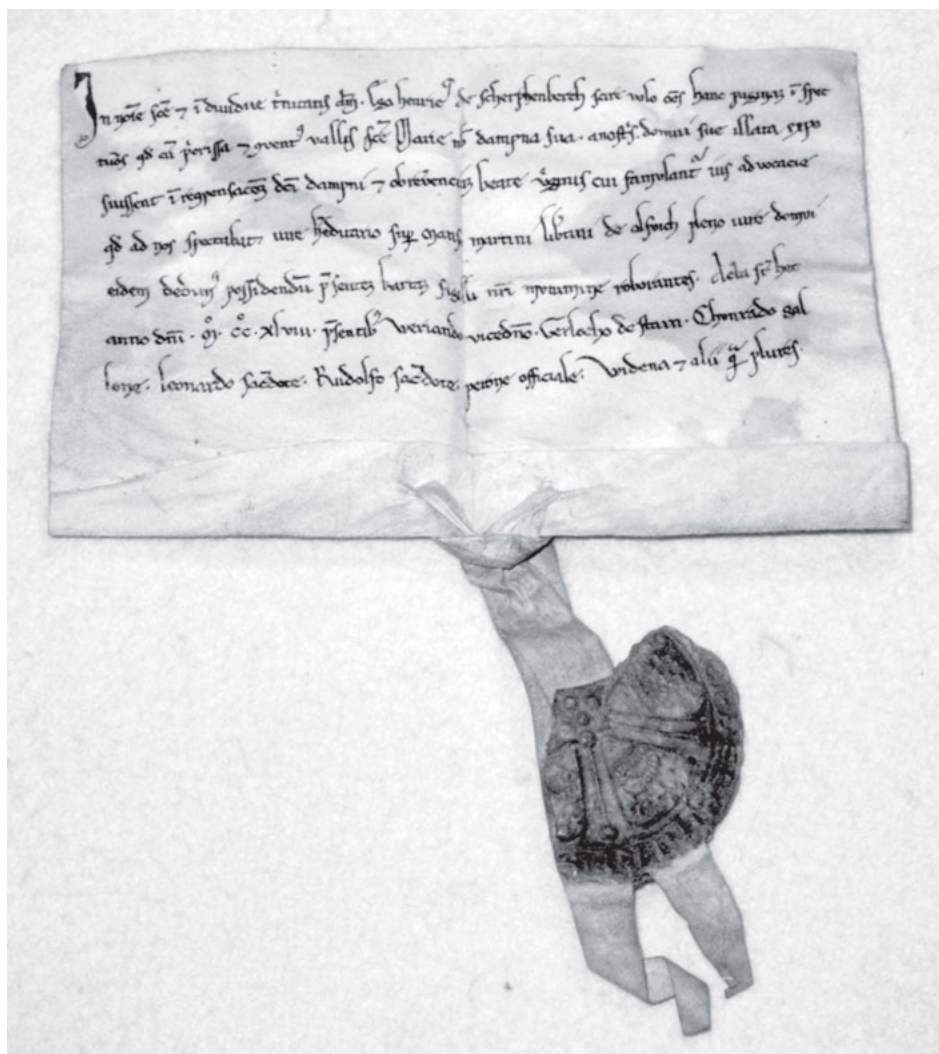 In noīe scē ⁊ īdiuidue t'nitatis am̄. Ego henric⁹ de scherphenberch scire uolo om̄s hanc paginam īspec
turos qd cū p'orissa ⁊ ꝯuent⁹ uallis scē Marie nob dampna sua. a nostris. domui sue illata expo
suissent ī recpensacōem dc̄i dampni ⁊ ob reuenciam beate uirginis cui famulantᷣ ius aduocacie
qd ad nos spectabat. iure hēditario sup mansū martini libtini de olsoich pleno iure domui
eidem dedim⁹ possidendū p̄sentem kartā sigilli nr̄i munimine roborantes. Acta st̄ hec
anno dn̄i. ᴍ̊. c̊c. xl viii. p̄sentib⁹ weriando vicedn̄o. Gerlocho de stain. Chonrado gal
lone. leonardo sac̄dote. Rudolfo sac̄dote. petone officiale. Widena ⁊ alii qᵃ plures.